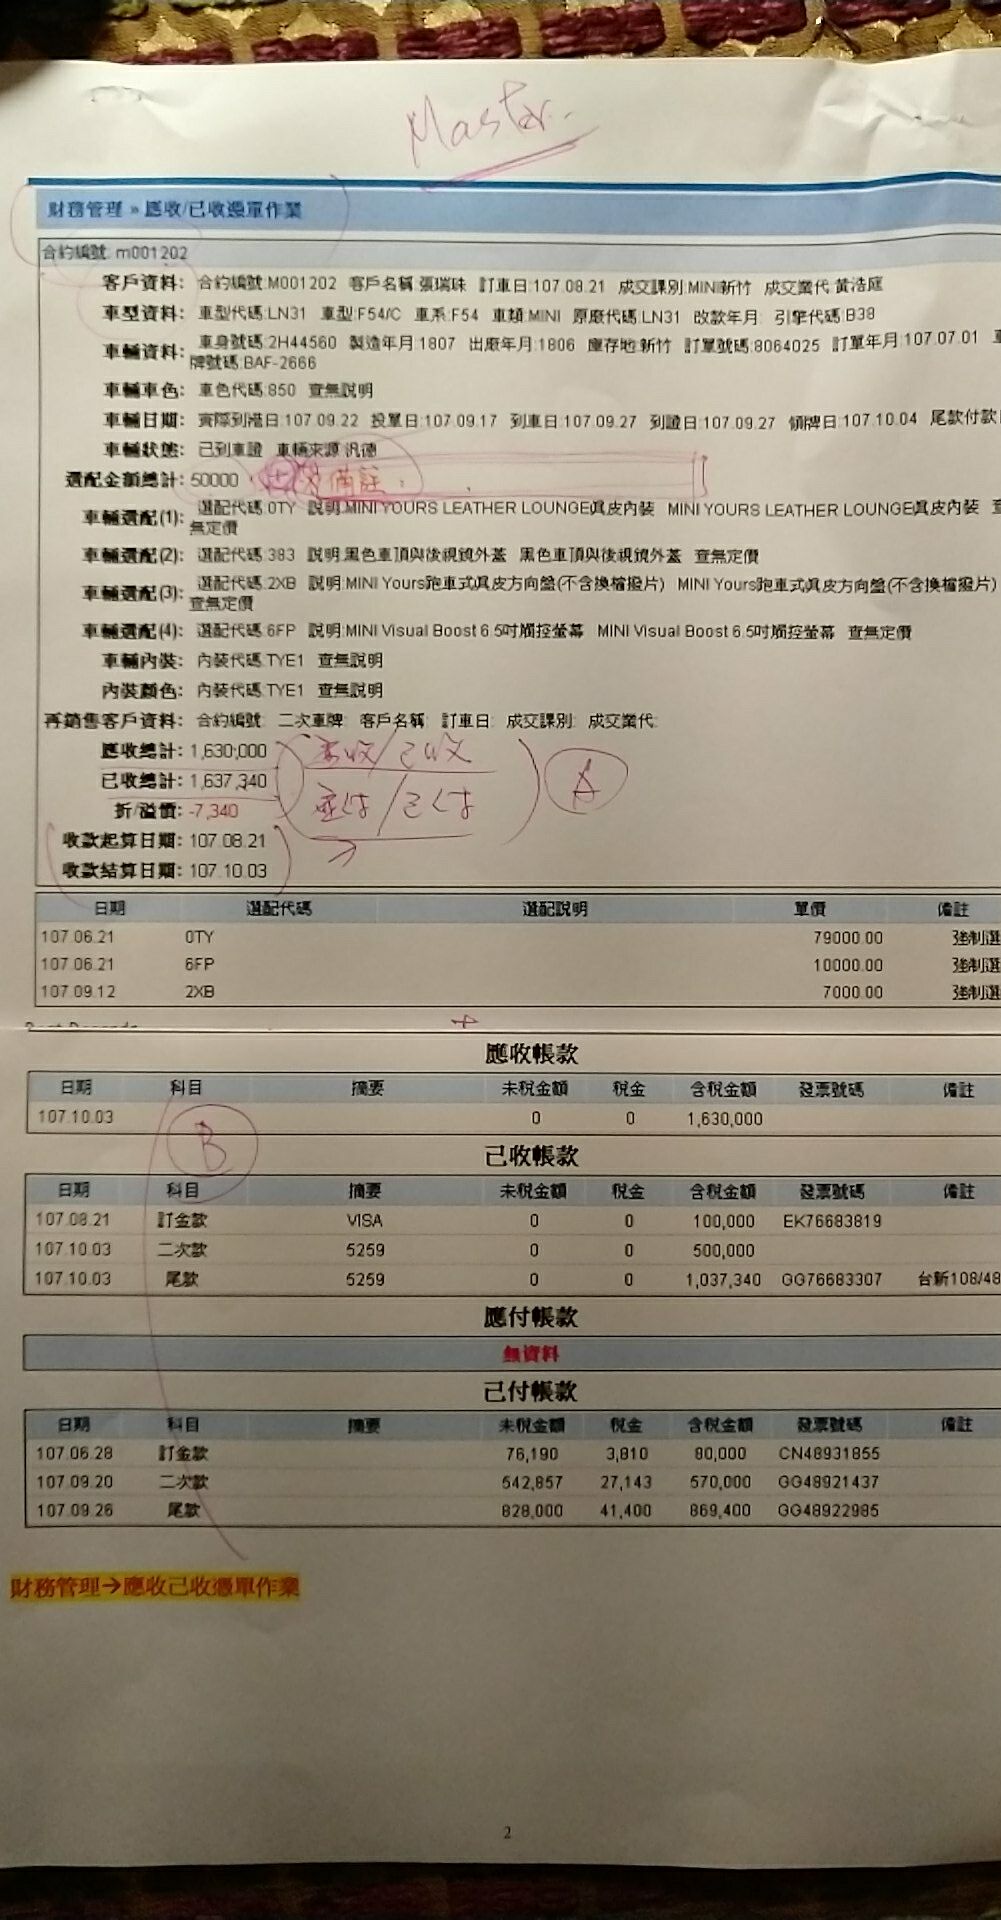 Master.
財務管理 » 應收/已收憑單作業
合約編號: m001202
客戶資料: 合約編號:M001202 客戶名稱:張瑞珠 訂車日:107.08.21 成交課別:MINI新竹 成交業代:黃浩庭
車型資料: 車型代碼:LN31 車型:F54/C 車系:F54 車類:MINI 原廠代碼:LN31 改款年月: 引擎代碼:B38
車輛資料: 車身號碼:2H44560 製造年月:1807 出廠年月:1806 庫存地:新竹 訂單號碼:8064025 訂單年月:107.07.01
牌號碼:BAF-2666
車輛車色: 車色代碼:850 查無說明
車輛日期: 實際到港日:107.09.22 投單日:107.09.17 到車日:107.09.27 到證日:107.09.27 領牌日:107.10.04 尾款付款
車輛狀態: 已到車證 車輛來源:汎德
選配金額總計: 50000 + 備註.
車輛選配(1): 選配代碼:0TY 說明:MINI YOURS LEATHER LOUNGE真皮內裝 MINI YOURS LEATHER LOUNGE真皮內裝 查
無定價
車輛選配(2): 選配代碼:383 說明:黑色車頂與後視鏡外蓋 黑色車頂與後視鏡外蓋 查無定價
車輛選配(3): 選配代碼:2XB 說明:MINI Yours跑車式真皮方向盤(不含換檔撥片) MINI Yours跑車式真皮方向盤(不含換檔撥片)
查無定價
車輛選配(4): 選配代碼:6FP 說明:MINI Visual Boost 6.5吋觸控螢幕 MINI Visual Boost 6.5吋觸控螢幕 查無定價
車輛內裝: 內裝代碼:TYE1 查無說明
內裝顏色: 內裝代碼:TYE1 查無說明
再銷售客戶資料: 合約編號: 二次車牌: 客戶名稱: 訂車日: 成交課別: 成交業代:
應收總計: 1,630,000 應收/已收
已收總計: 1,637,340 應付/已付 A
折/溢價: -7,340
收款起算日期: 107.08.21
收款結算日期: 107.10.03
日期 選配代碼 選配說明 單價 備註
107.06.21 0TY 79000.00 強制選
107.06.21 6FP 10000.00 強制選
107.09.12 2XB 7000.00 強制選
+
應收帳款
日期 科目 摘要 未稅金額 稅金 含稅金額 發票號碼 備註
107.10.03 0 0 1,630,000
B
已收帳款
日期 科目 摘要 未稅金額 稅金 含稅金額 發票號碼 備註
107.08.21 訂金款 VISA 0 0 100,000 EK76683819
107.10.03 二次款 5259 0 0 500,000
107.10.03 尾款 5259 0 0 1,037,340 GG76683307 台新108/48
應付帳款
無資料
已付帳款
日期 科目 摘要 未稅金額 稅金 含稅金額 發票號碼 備註
107.06.28 訂金款 76,190 3,810 80,000 CN48931855
107.09.20 二次款 542,857 27,143 570,000 GG48921437
107.09.26 尾款 828,000 41,400 869,400 GG48922985
財務管理→應收己收憑單作業
2